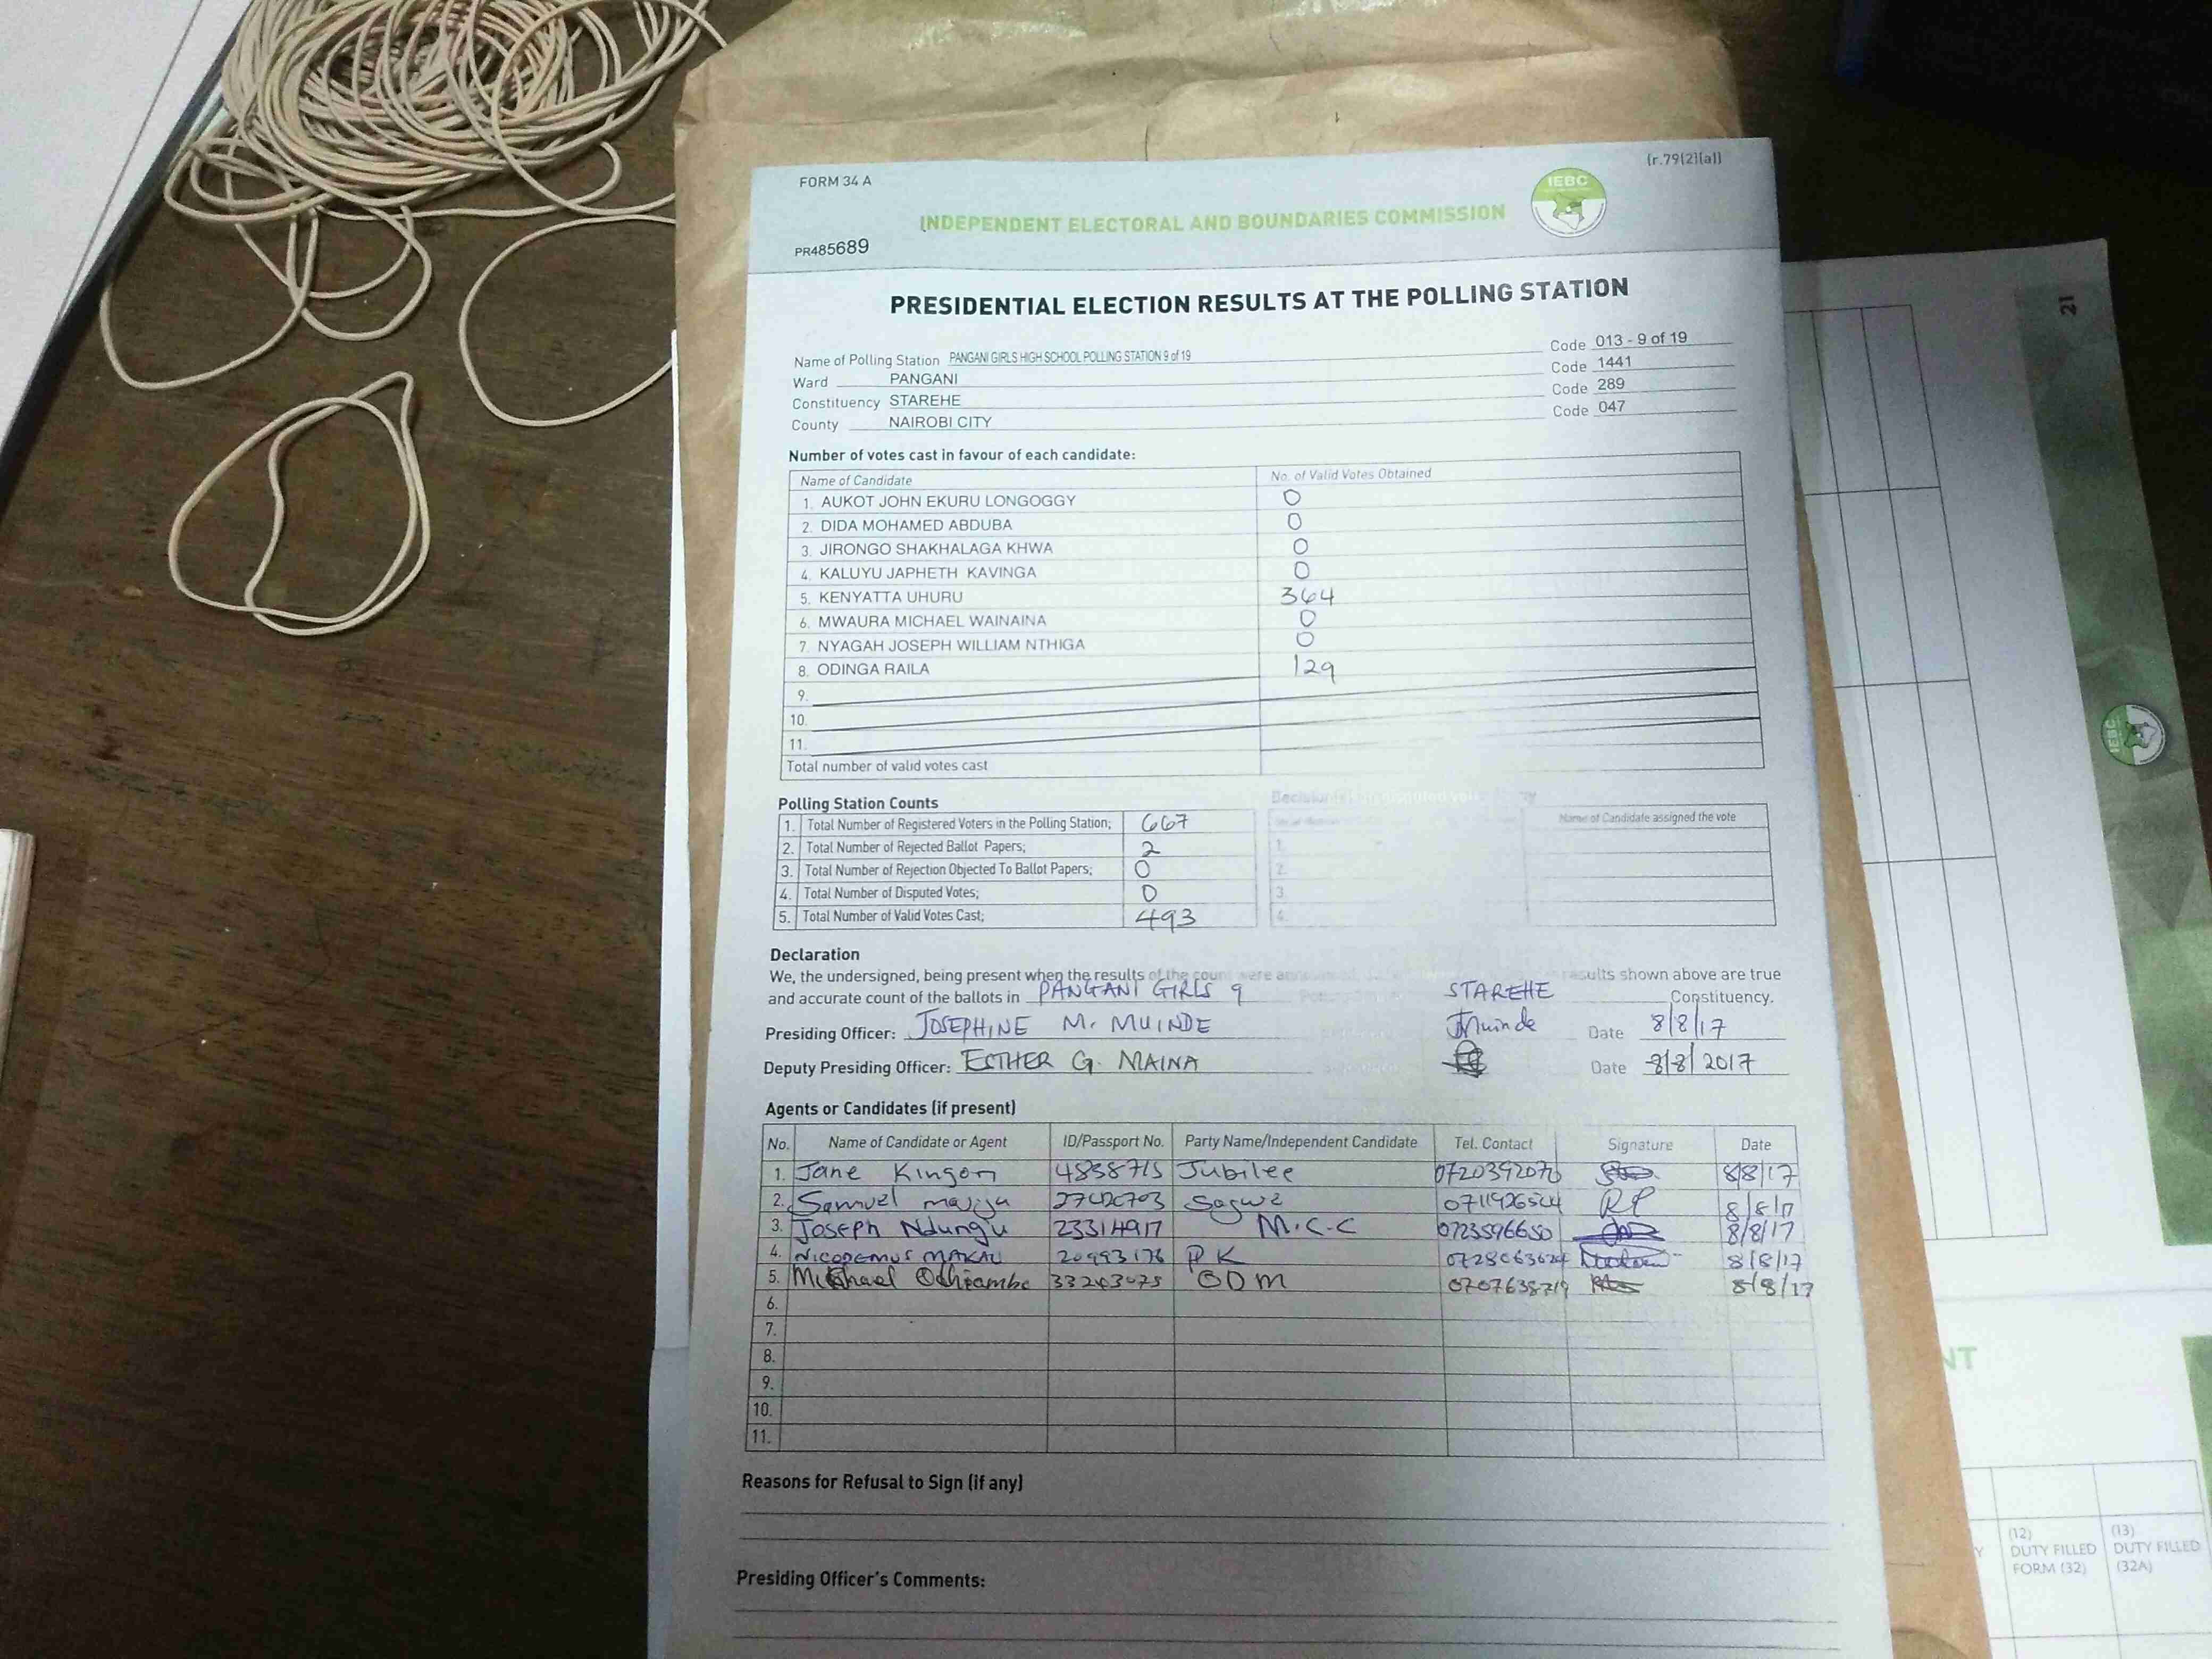 FORM 34 A
(r.79(2)(a))
IEBC
INDEPENDENT ELECTORAL AND BOUNDARIES COMMISSION
PR485689
PRESIDENTIAL ELECTION RESULTS AT THE POLLING STATION
Name of Polling Station PANGANI GIRLS HIGH SCHOOL POLLING STATION 9 of 19 Code 013 - 9 of 19
Ward PANGANI Code 1441
Constituency STAREHE Code 289
County NAIROBI CITY Code 047
Number of votes cast in favour of each candidate:
Name of Candidate No. of Valid Votes Obtained
1. AUKOT JOHN EKURU LONGOGGY 0
2. DIDA MOHAMED ABDUBA 0
3. JIRONGO SHAKHALAGA KHWA 0
4. KALUYU JAPHETH KAVINGA 0
5. KENYATTA UHURU 364
6. MWAURA MICHAEL WAINAINA 0
7. NYAGAH JOSEPH WILLIAM NTHIGA 0
8. ODINGA RAILA 129
9.
10.
11.
Total number of valid votes cast
Polling Station Counts
1. Total Number of Registered Voters in the Polling Station; 667
2. Total Number of Rejected Ballot Papers; 2
3. Total Number of Rejection Objected To Ballot Papers; 0
4. Total Number of Disputed Votes; 0
5. Total Number of Valid Votes Cast; 493
Name of Candidate assigned the vote
1.
2.
3.
4.
Declaration
We, the undersigned, being present when the results of the count were results shown above are true
and accurate count of the ballots in PANGANI GIRLS 9 STAREHE Constituency.
Presiding Officer: JOSEPHINE M. MUINDE JMuinde Date 8/8/17
Deputy Presiding Officer: ESTHER G. MAINA Date 8/8/2017
Agents or Candidates (if present)
No. Name of Candidate or Agent ID/Passport No. Party Name/Independent Candidate Tel. Contact Signature Date
1. Jane 4838715 Jubilee 0720392070 8/8/17
2. Samuel 8/8/17
3. Joseph Ndung'u 23314917 M.C.C 0723596650 8/8/17
4. NICODEMUS MAKAU 20993176 8/8/17
5. Michael Odhiambo ODM 8/8/17
6.
7.
8.
9.
10.
11.
Reasons for Refusal to Sign (if any)
Presiding Officer's Comments:
21
IEBC
NT
(12)
DUTY FILLED
FORM (32)
(13)
DUTY FILLED
(32A)